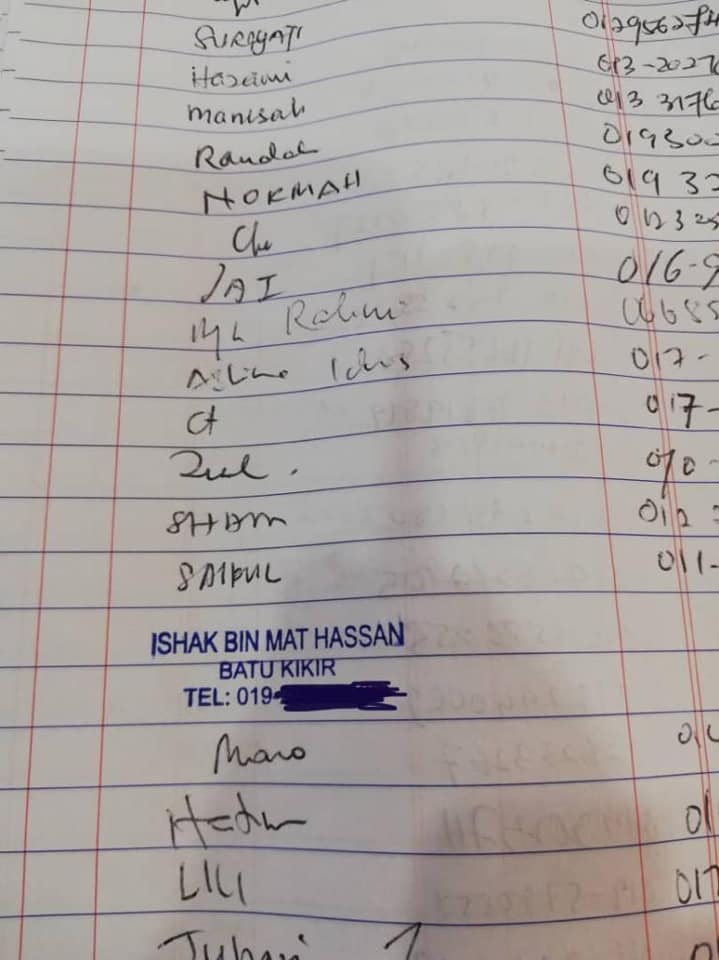 SURAYATI 012956274
Hazaimi 013-2027
manisah 013 3176
Raudah 019300
NORMAH 019 33
Che 01232
JAI 016-9
Rahmi
Idris 017-
Ct 017-
Zul. 010-
SHAM 012
SAIPUL 011-
ISHAK BIN MAT HASSAN
BATU KIKIR
TEL: 019-
01
01
LILI 017